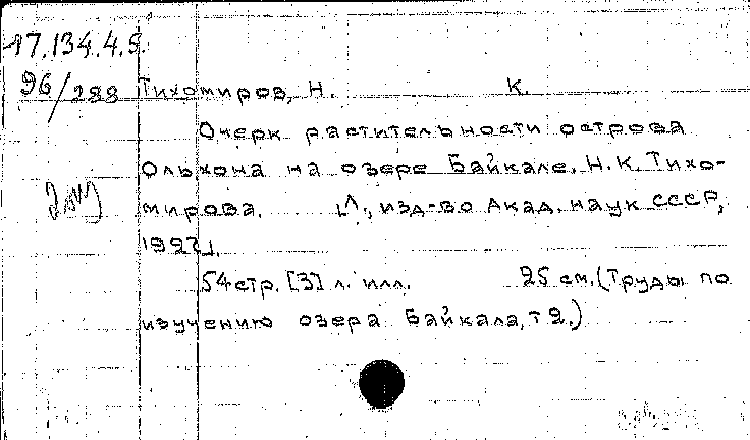 17.134.4.5.
96/288 Тихомиров, Н. К.
Очерк растительности острова
Ольхона на озере Байкале. Н. К. Тихо-
мирова. [Л., изд-во Акад. наук СССР,
1927].
54 стр. [3] л. илл. 25 см. (Труды по
изучению озера Байкала, т 2.)